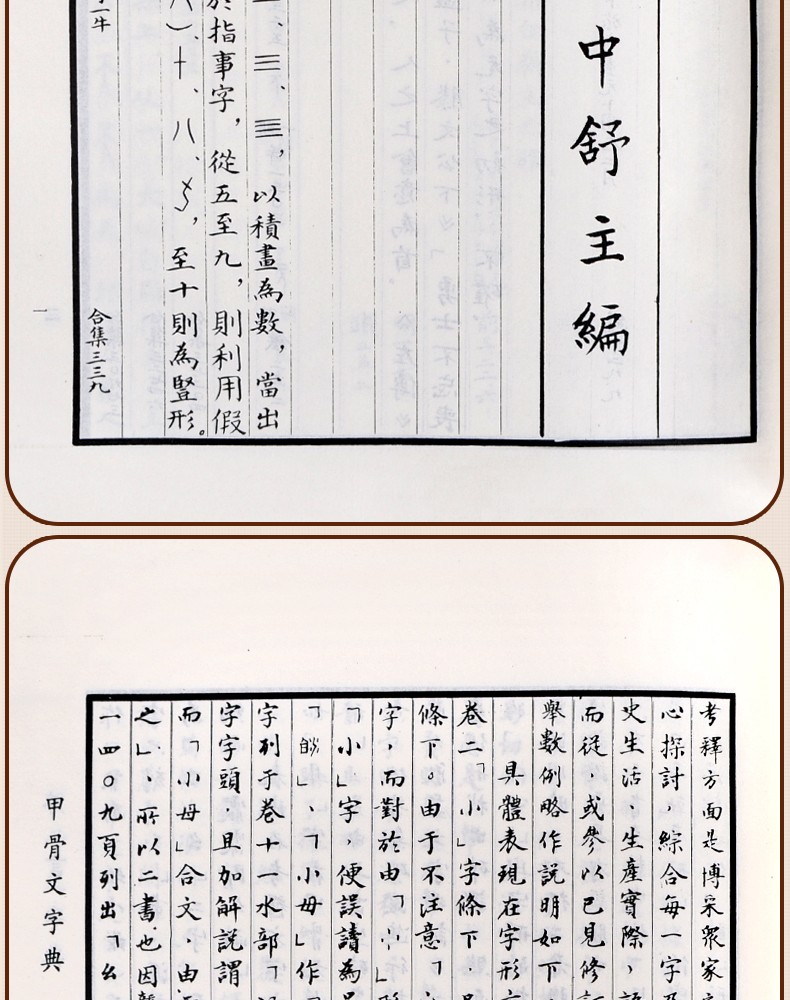 中舒主編
二、三、亖，以積畫為數，當出
於指事字，從五至九，則利用假
八）、十、八、，至十則為豎形。
一牛 合集三三九
考釋方面是博采眾家
心探討，綜合每一字
史生活、生產實際，
而從，或參以已見修
舉數例略作說明如下
具體表現在字形
卷二「小」字條下，
條下。由于不注意「
字，而對於由「」
「小」字，便誤讀為
「」、「小母」作「
字列于卷十一水部「
字字頭且加解說謂
而「小母」合文，由
之」、所以二書也因
一四〇九頁列出
甲骨文字典